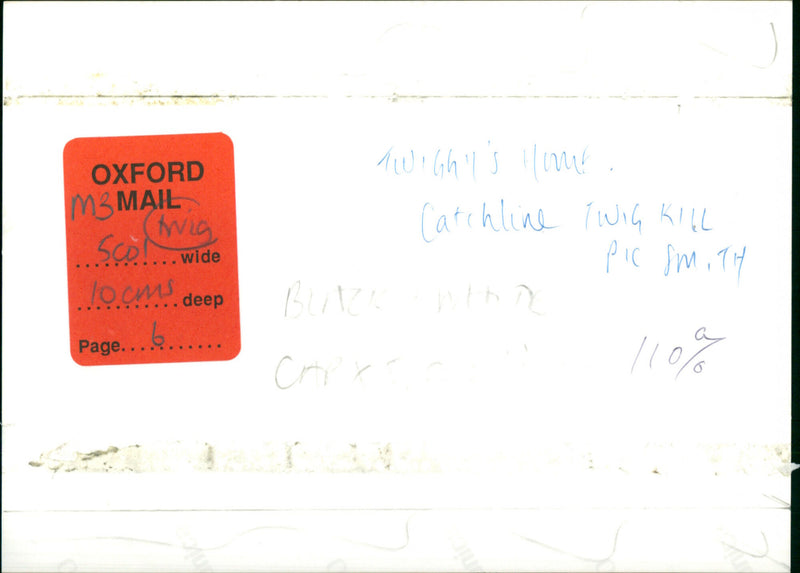 OXFORD
MAIL
M3
twig
5col wide
10cms deep
Page 6
TWIGGY'S HOME.
Catchline TWIG KILL
PIC SMITH
BLACK WHITE
110 a/o